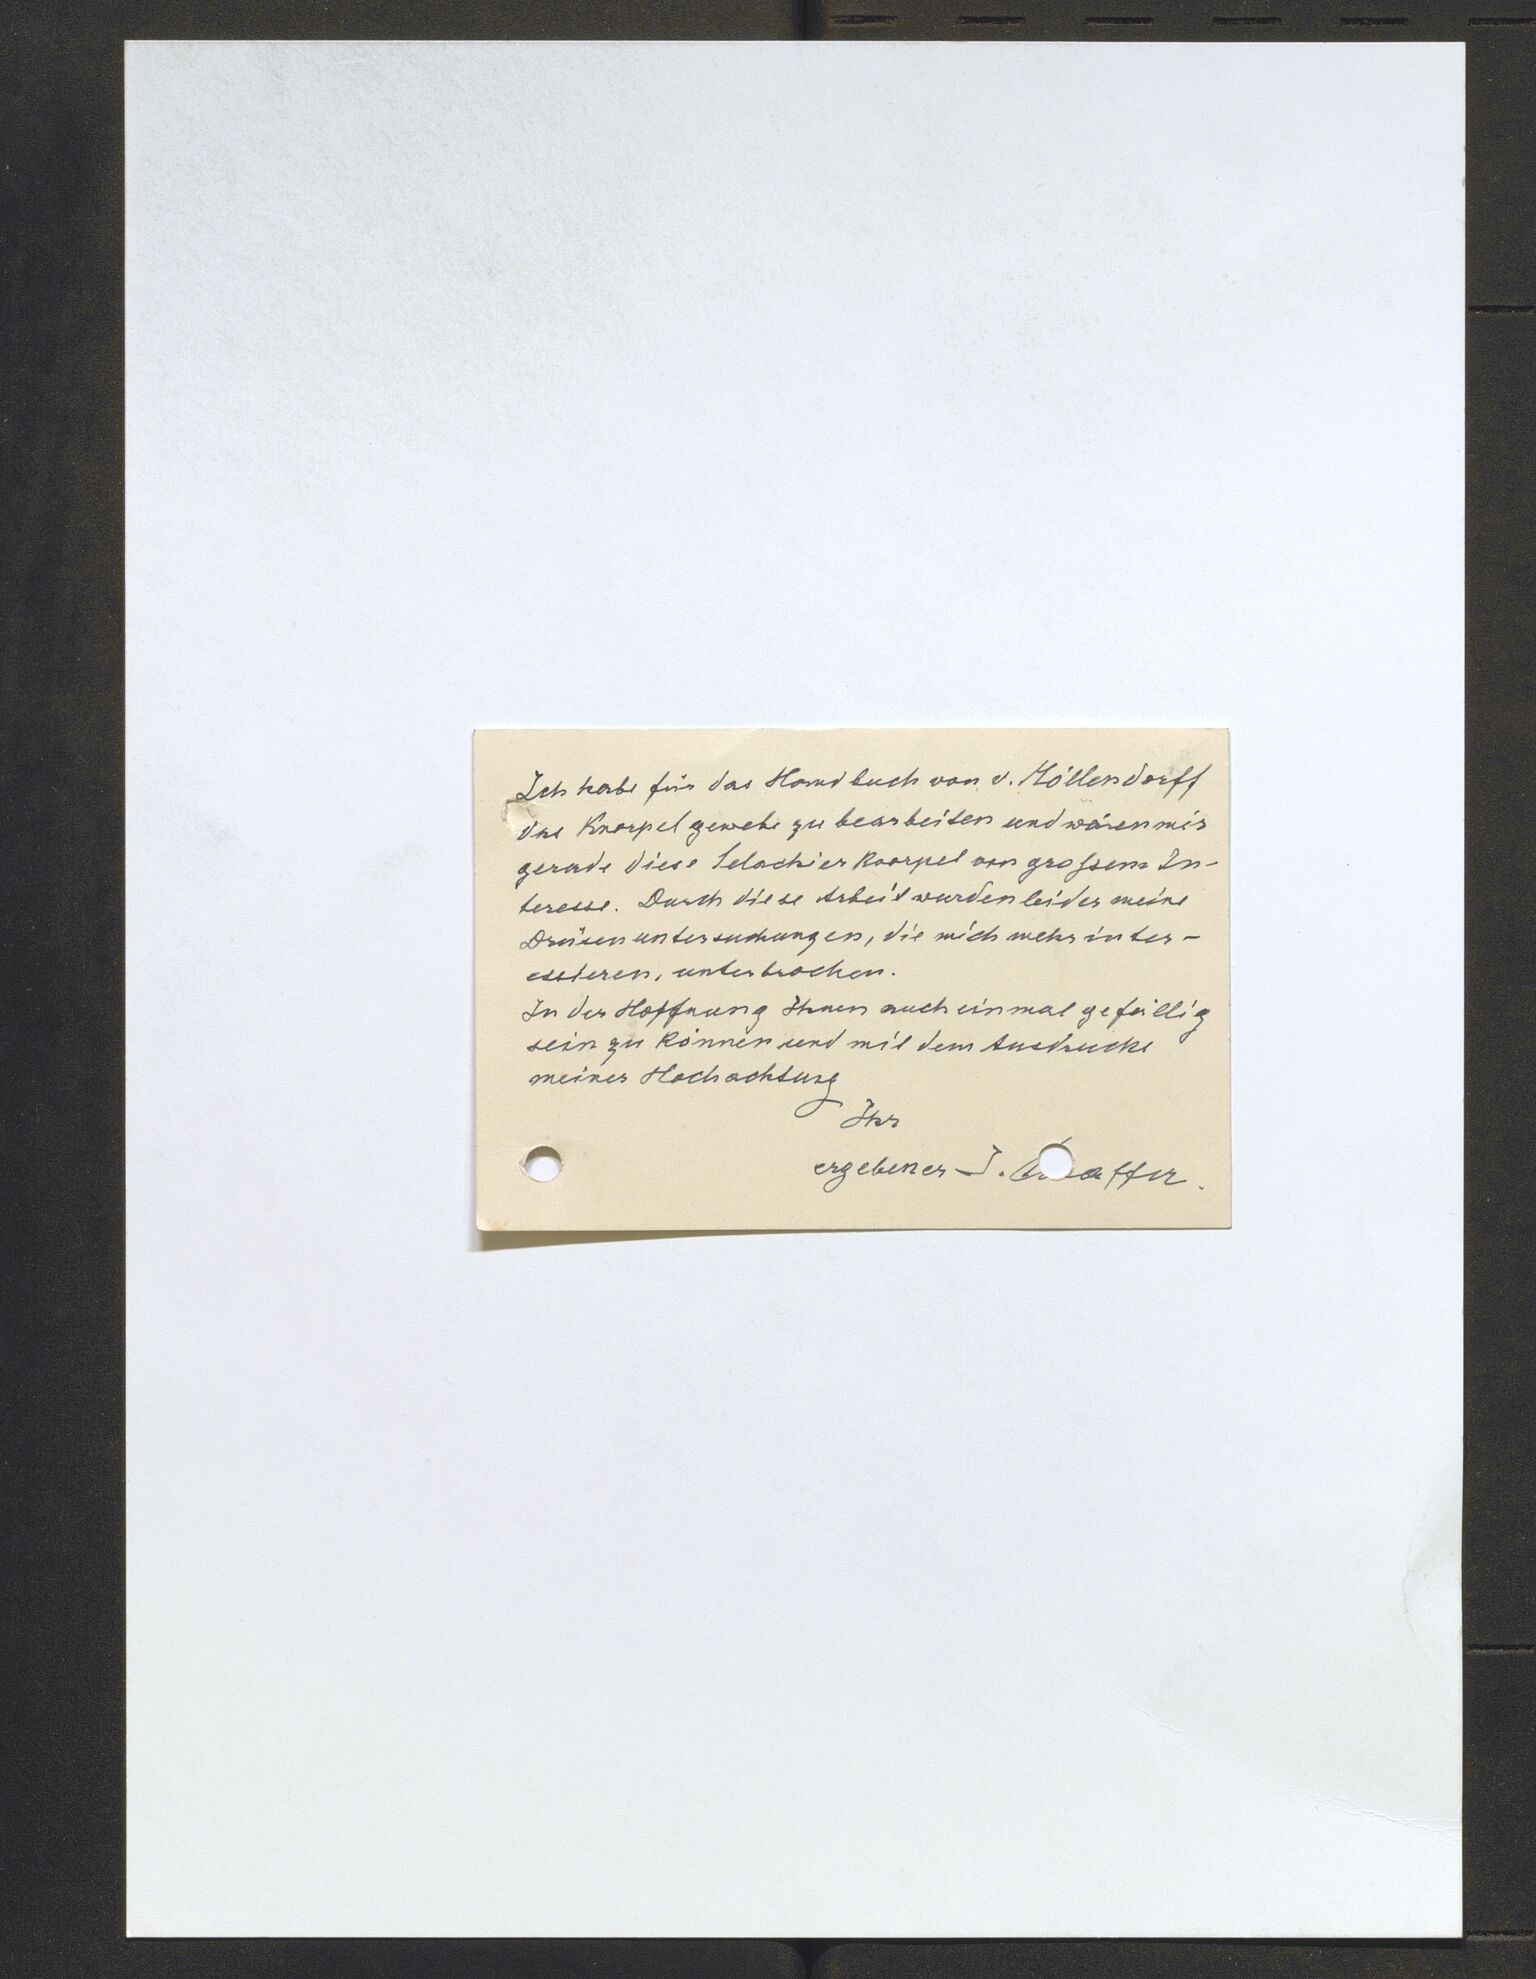 Ich habe für das Handbuch von v. Möllendorff
das Knorpelgewebe zu bearbeiten und wären mir
gerade diese Selachier Knorpel von grossem In-
teresse. Durch diese Arbeit wurden leider meine
Drüsenuntersuchungen, die mich mehr inter-
essieren, unterbrochen.
In der Hoffnung Ihnen auch einmal gefällig
sein zu können und mit dem Ausdrucke
meiner Hochachtung
Ihr
ergebener J.